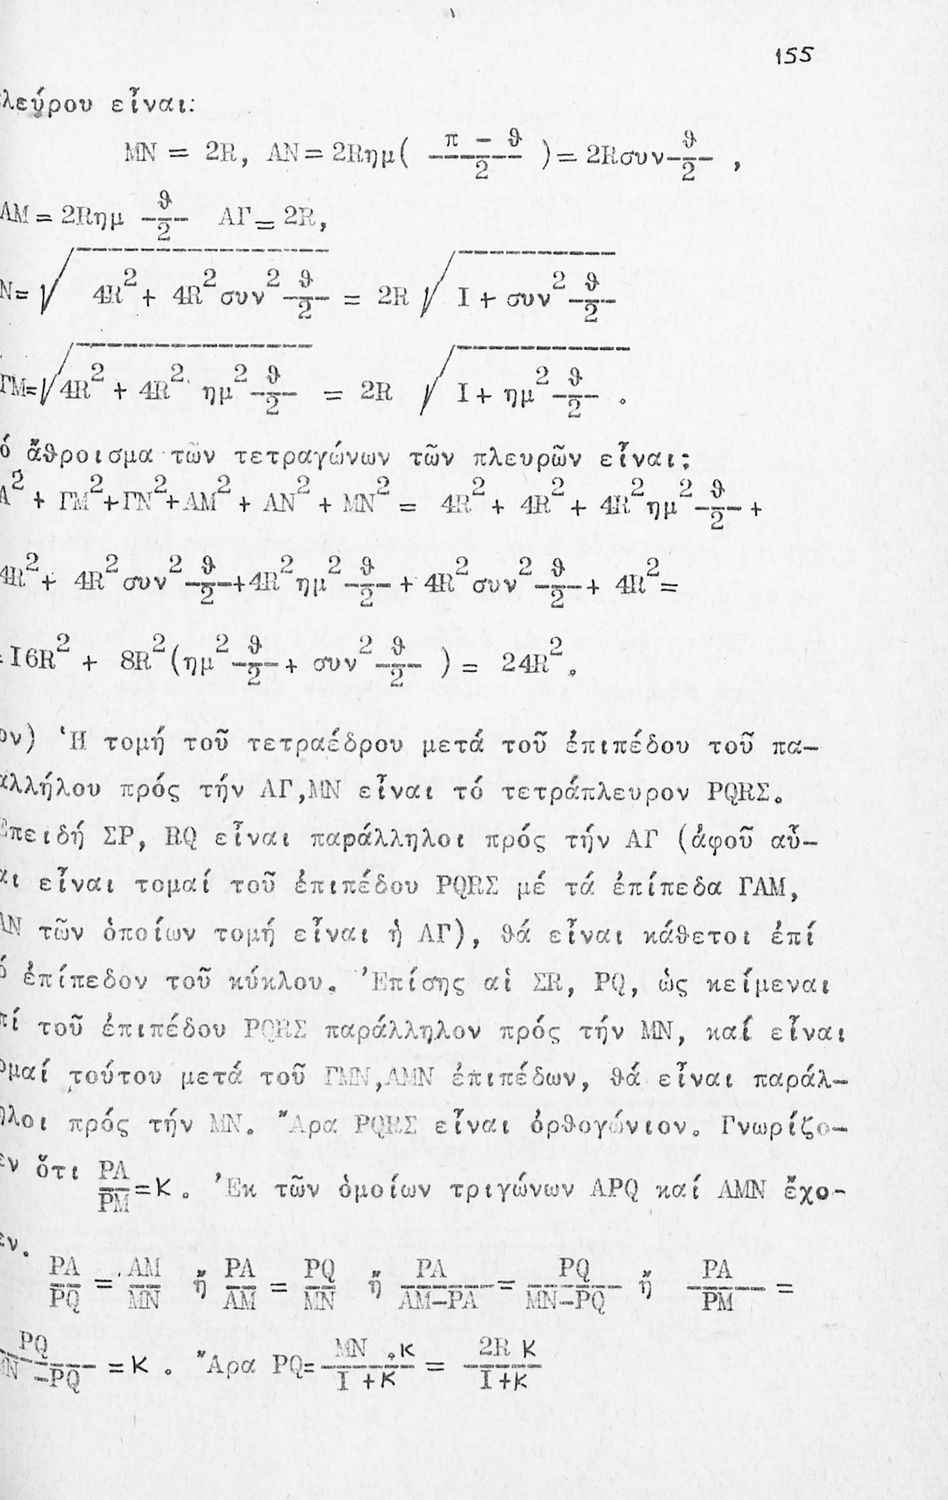 155
λεύρου εἶναι:
ΜΝ = 2R, ΑΝ = 2Rημ( (π - ϑ)/2 ) = 2Rσυν ϑ/2 ,
ΑΜ = 2Rημ ϑ/2 ΑΓ = 2R,
Ν = √(4R² + 4R² συν² ϑ/2) = 2R √(Ι + συν² ϑ/2)
ΓΜ = √(4R² + 4R² ημ² ϑ/2) = 2R √(Ι + ημ² ϑ/2) .
ό ἄϑροισμα τῶν τετραγώνων τῶν πλευρῶν εἶναι:
Α² + ΓΜ² + ΓΝ² + ΑΜ² + ΑΝ² + ΜΝ² = 4R² + 4R² + 4R² ημ² ϑ/2 +
4R² + 4R² συν² ϑ/2 + 4R² ημ² ϑ/2 + 4R² συν² ϑ/2 + 4R² =
= Ι6R² + 8R² (ημ² ϑ/2 + συν² ϑ/2 ) = 24R² .
ον) Ἡ τομή τοῦ τετραέδρου μετά τοῦ ἐπιπέδου τοῦ πα-
αλλήλου πρός τήν ΑΓ,ΜΝ εἶναι τό τετράπλευρον PQRΣ.
Ἐπειδή ΣΡ, RQ εἶναι παράλληλοι πρός τήν ΑΓ (ἀφοῦ αὗ-
αι εἶναι τομαί τοῦ ἐπιπέδου PQRΣ μέ τά ἐπίπεδα ΓΑΜ,
ΑΝ τῶν ὁποίων τομή εἶναι ἡ ΑΓ), ϑά εἶναι κάϑετοι ἐπί
ό ἐπίπεδον τοῦ κύκλου. Ἐπίσης αἱ ΣR, PQ, ὡς κείμεναι
πί τοῦ ἐπιπέδου PQRΣ παράλληλον πρός τήν ΜΝ, καί εἶναι
ομαί τούτου μετά τοῦ ΓΜΝ,ΑΜΝ ἐπιπέδων, ϑά εἶναι παράλ-
ηλοι πρός τήν ΜΝ. Ἄρα PQRΣ εἶναι ὀρϑογώνιον. Γνωρίζο-
εν ὅτι ΡΑ/ΡΜ = Κ . Ἐκ τῶν ὁμοίων τριγώνων APQ καί ΑΜΝ ἔχο-
εν.
ΡΑ/PQ = ΑΜ/ΜΝ ἤ ΡΑ/ΑΜ = PQ/ΜΝ ἤ ΡΑ/(ΑΜ-ΡΑ) = PQ/(ΜΝ-PQ) ἤ ΡΑ/ΡΜ =
PQ/(ΜΝ-PQ) = Κ . Ἄρα PQ = (ΜΝ .κ)/(Ι + Κ) = (2R Κ)/(Ι+Κ)